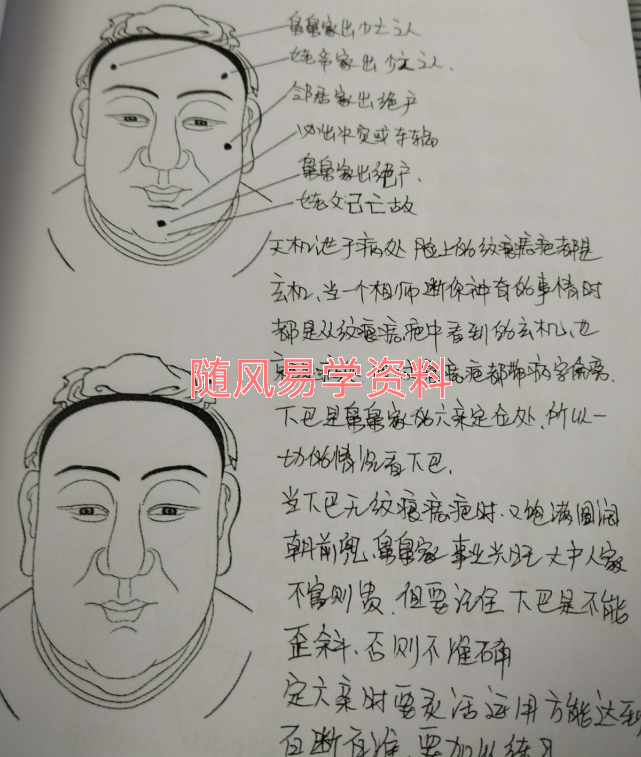 舅舅家出少亡之人
姥爷家出少亡之人.
邻居家出绝户
必出冲突或车祸
舅舅家出绝户.
姥父已亡故
天机泄于病处 脸上的纹痕痣疤都是
玄机、当一个相师断你神奇的事情时
都是从纹痕痣疤中看到的玄机、也
痣疤都带病字偏旁.
随风易学资料
下巴是舅舅家的六亲定位处.所以一
切的情况看下巴.
当下巴无纹痕痣疤时.又饱满圆润
朝前兜、舅舅家事业兴旺 大中人家
不富则贵.但要记住下巴是不能
歪斜、否则不准确
定六亲时要灵活运用方能达到
百断百准.要加以练习